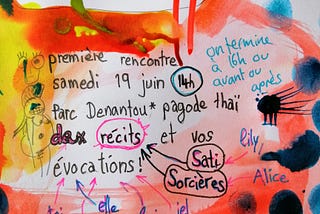 première rencontre
samedi 19 juin 14h
on termine
à 16h ou
avant ou
après
Parc Denantou* pagode thaï
deux récits et vos
évocations!
Sati
Sorcières
lily
Alice
elle
iel